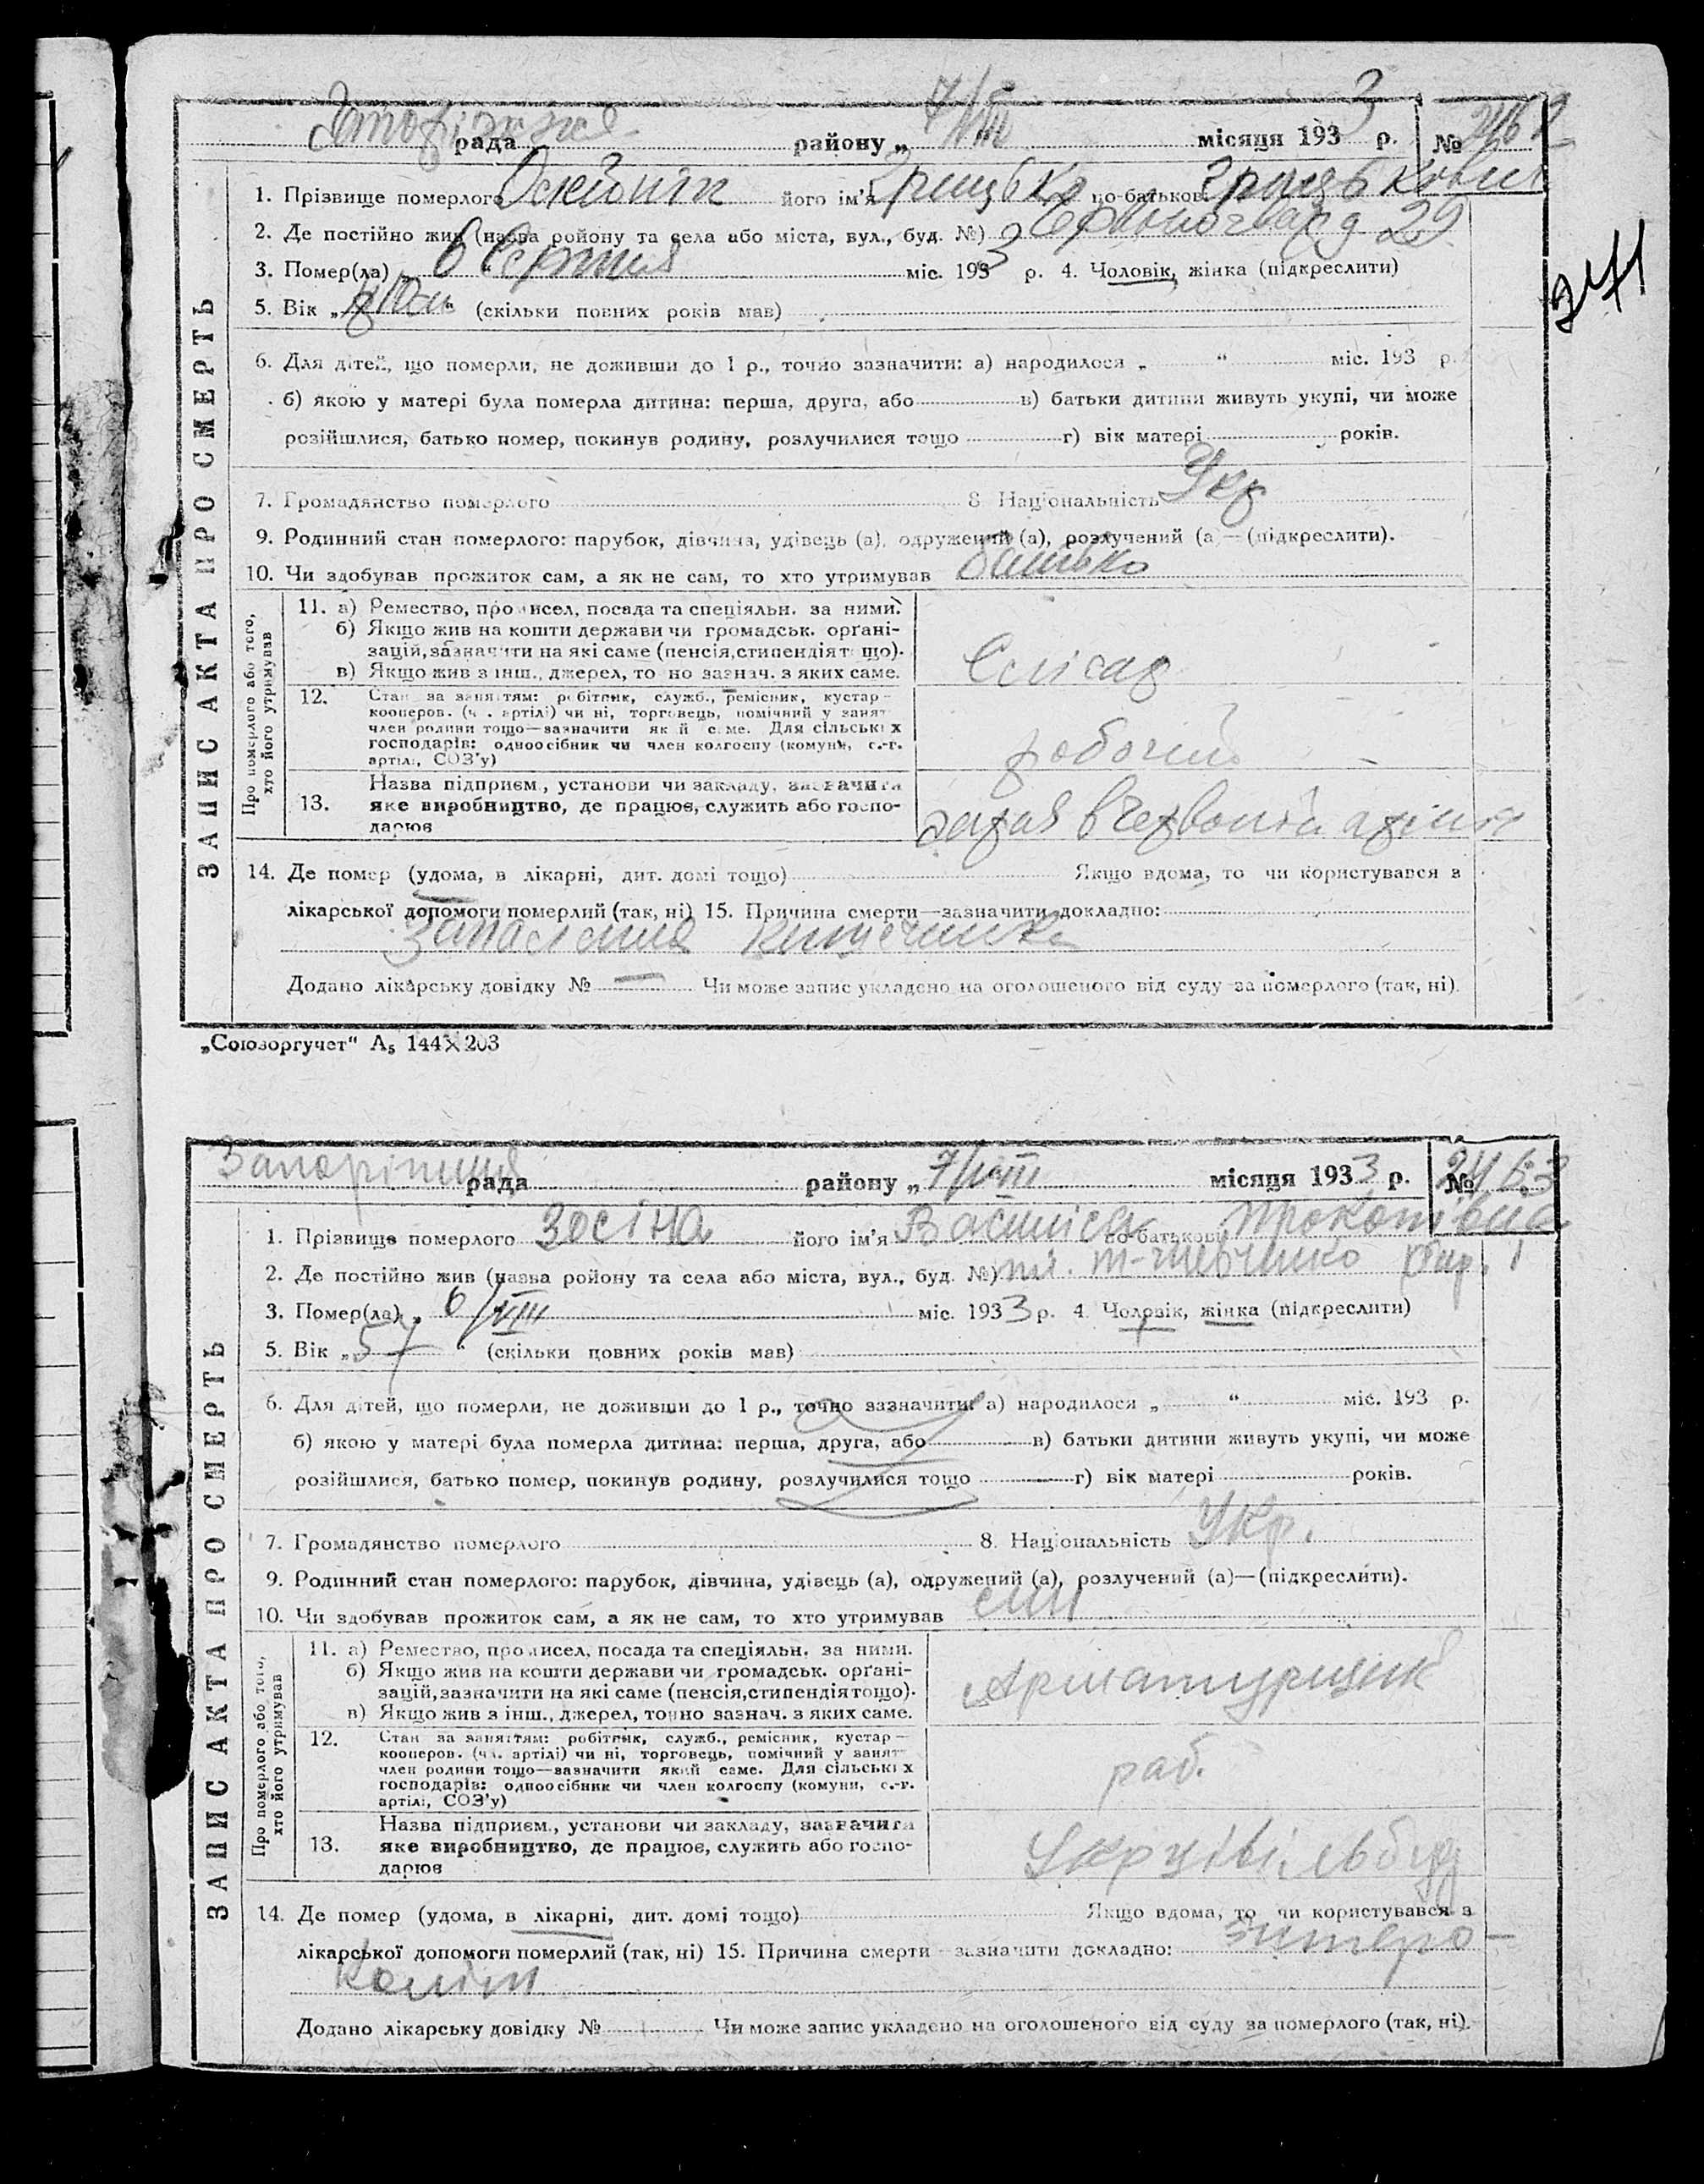 Запоріжжя рада району „ 7/VIII місяця 1933 р. № 2462
1. Прізвище померлого Олейнік його ім'я Грицько по-батькові Грицькович
2. Де постійно жив (назва району та села або міста, вул., буд. №) Червоногвард 29
3. Помер(ла) „ 6 Серпня міс. 1933 р. 4. Чоловік, жінка (підкреслити)
5. Вік „ “ (скільки повних років мав)
6. Для дітей, що померли, не доживши до 1 р., точно зазначити: а) народилося „ “ міс. 193 р.
б) якою у матері була померла дитина: перша, друга, або в) батьки дитини живуть укупі, чи може
розійшлися, батько помер, покинув родину, розлучилися тощо г) вік матері років.
7. Громадянство померлого 8 Національність Укр
9. Родинний стан померлого: парубок, дівчина, удівець (а), одружений (а), розлучений (а)—(підкреслити).
10. Чи здобував прожиток сам, а як не сам, то хто утримував батько
ЗАПИС АКТА ПРО СМЕРТЬ
Про померлого або того, хто його утримував
11. а) Ремество, промисел, посада та спеціяльн. за ними.
б) Якщо жив на кошти держави чи громадськ. орґані-
зацій, зазначити на які саме (пенсія, стипендія тощо).
в) Якщо жив з інш., джерел, точно зазнач. з яких саме.
Слісар
12. Стан за заняттям: робітник, служб., ремісник, кустар—
кооперов. (чл. артілі) чи ні, торговець, помічний у занят
член родини тощо—зазначити який саме. Для сільських
господарів: одноосібник чи член колгоспу (комуни, с.-г.
артілі, СОЗ'у)
робочий
13. Назва підприєм., установи чи закладу, зазначити
яке виробництво, де працює, служить або госпо-
дарює
зараз в Червоній армії
14. Де помер (удома, в лікарні, дит. домі тощо) Якщо вдома, то чи користувався з
лікарської допомоги померлий (так, ні) 15. Причина смерти—зазначити докладно:
Запаления кишечника
Додано лікарську довідку № — Чи може запис укладено на оголошеного від суду за померлого (так, ні).
„Союзоргучет“ А₅ 144×203
241
рада району „ 7/VIII місяця 1933 р. № 2463
1. Прізвище померлого Зосіна його ім'я Василіса по-батькові Прокопівна
2. Де постійно жив (назва району та села або міста, вул., буд. №) пл. т-Шевченко бар. 1
3. Помер(ла) „ 6/VIII міс. 1933 р. 4. Чоловік, жінка (підкреслити)
5. Вік „ 57 “ (скільки повних років мав)
6. Для дітей, що померли, не доживши до 1 р., точно зазначити: а) народилося „ “ міс. 193 р.
б) якою у матері була померла дитина: перша, друга, або в) батьки дитини живуть укупі, чи може
розійшлися, батько помер, покинув родину, розлучилися тощо г) вік матері років.
7. Громадянство померлого 8. Національність Укр.
9. Родинний стан померлого: парубок, дівчина, удівець (а), одружений (а), розлучений (а)—(підкреслити).
10. Чи здобував прожиток сам, а як не сам, то хто утримував син
ЗАПИС АКТА ПРО СМЕРТЬ
Про померлого або того, хто його утримував
11. а) Ремество, промисел, посада та спеціяльн. за ними.
б) Якщо жив на кошти держави чи громадськ. орґані-
зацій, зазначити на які саме (пенсія, стипендія тощо).
в) Якщо жив з інш., джерел, точно зазнач. з яких саме.
Арматурщик
12. Стан за заняттям: робітник, служб., ремісник, кустар—
кооперов. (чл. артілі) чи ні, торговець, помічний у занят
член родини тощо—зазначити який саме. Для сільських
господарів: одноосібник чи член колгоспу (комуни, с.-г.
артілі, СОЗ'у)
раб.
13. Назва підприєм., установи чи закладу, зазначити
яке виробництво, де працює, служить або госпо-
дарює
Укрцівільбуд
14. Де помер (удома, в лікарні, дит. домі тощо) Якщо вдома, то чи користувався з
лікарської допомоги померлий (так, ні) 15. Причина смерти—зазначити докладно: энтеро-
колит
Додано лікарську довідку № Чи може запис укладено на оголошеного від суду за померлого (так, ні).